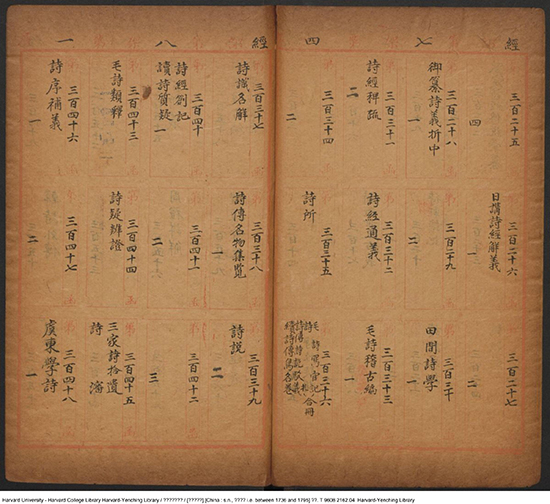 經 七 四
三百二十五
四
日講詩經解義
三百二十六
一
三百二十七
二
御纂詩義折中
三百二十八
一
三百二十九
二
田間詩學
三百三十
一
詩經稗疏
三百三十一
二
詩經通義
三百三十二
毛詩稽古編
三百三十三
一
三百三十四
二
詩所
三百三十五
三百三十六
毛詩寫官記
詩札 合冊
詩傳詩說駁義
續詩傳鳥名卷
經 八 一
詩識名解
三百三十七
詩傳名物集覽
三百三十八
一
詩說
三百三十九
二
詩經劄記
讀詩質疑 一
三百四十
三百四十一
二
三百四十二
三
毛詩類釋
三百四十三
詩疑辨證
三百四十四
三家詩拾遺
詩瀋
三百四十五
詩序補義
三百四十六
一
三百四十七
二
虞東學詩
三百四十八
一
Harvard University - Harvard College Library Harvard-Yenching Library / ??????? / [?????] [China : s.n., ???? i.e. between 1736 and 1795] ??. T 9608 2162.04 Harvard-Yenching Library